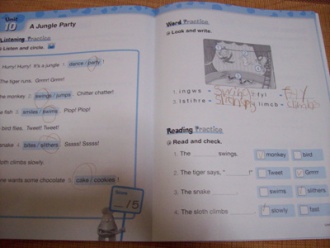 Unit 10 A Jungle Party
Listening Practice
Listen and circle.
Hurry! Hurry! It's a jungle ( dance / party )
The tiger runs. Grrrr! Grrrr!
The monkey ( swings / jumps ). Chitter chatter!
The fish ( / swims ). Plop! Plop!
bird flies. Tweet! Tweet!
snake ( bites / slithers ). Sssss! Sssss!
sloth climbs slowly.
wants some chocolate ( cake / cookies )
Score
/5
Word Practice
Look and write.
1. i n g w s
2.
Reading Practice
Read and check.
1. The swings. monkey bird
2. The tiger says, " !" Tweet Grrrr
3. The snake swims slithers
4. The sloth climbs slowly fast